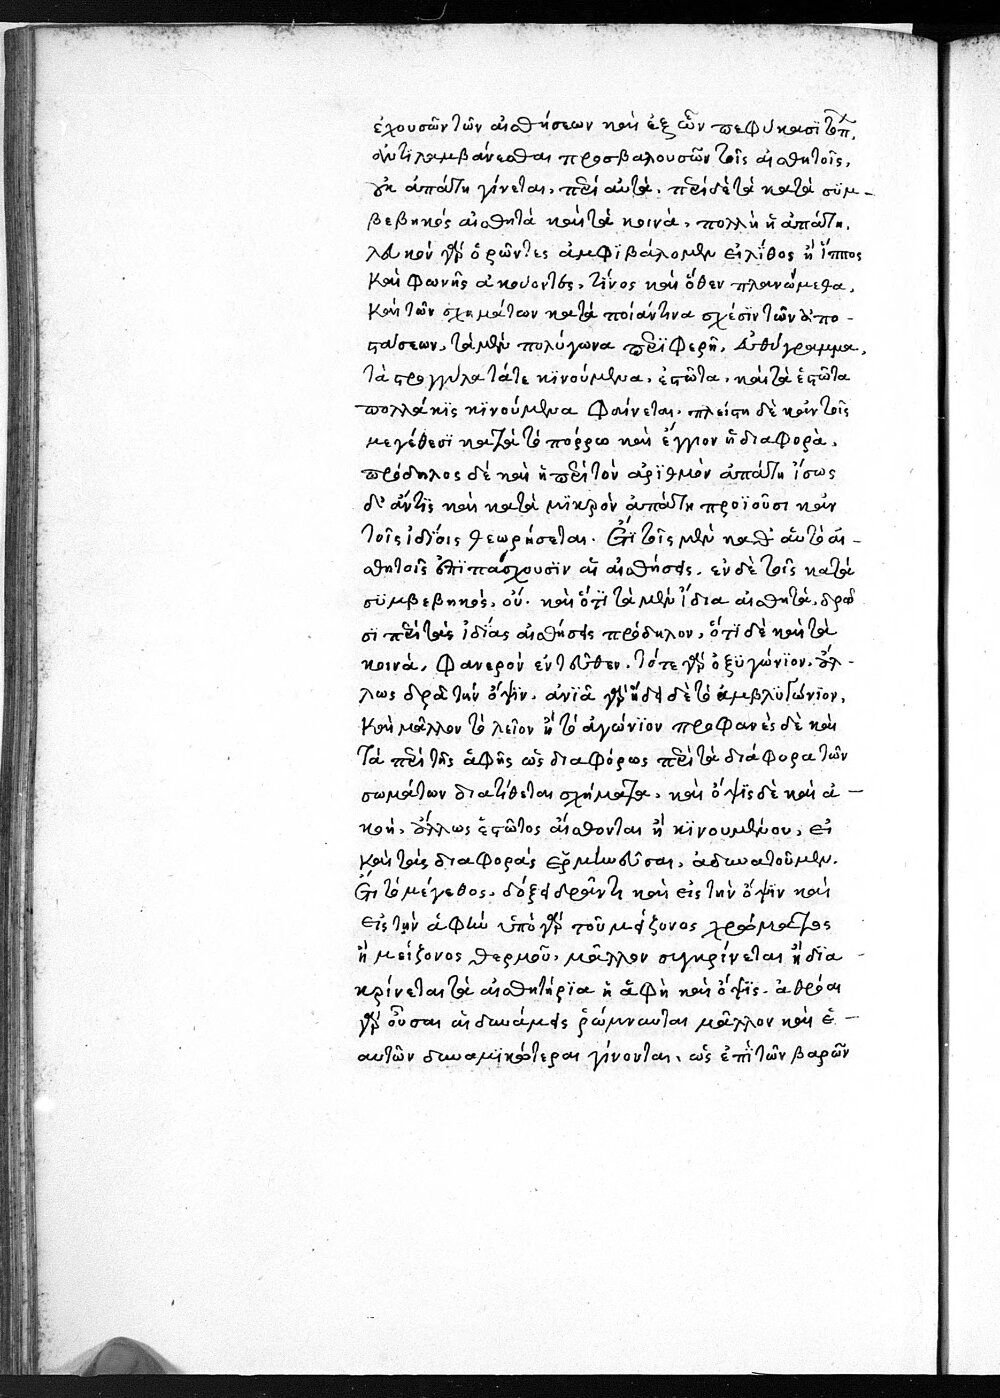 ἐχουσῶν τῶν αἰσθήσεων καὶ ἐξ ὧν πεφύκασϊ
ἀντϊλαμβάνεσθαι προσβαλουσῶν τοῖς αἰσθητοῖς,
οὐκ ἀπάτη γίνεται, περὶ αὐτά. περὶ δὲ τὰ κατὰ σϋμ-
βεβηκὸς αἰσθητὰ καὶ τὰ κοινὰ, πολλὴ ἡ ἀπάτη.
λευκὸν γὰρ ὁρῶντες ἀμφϊβάλομεν εἰ λίθος ἢ ἵππος
καὶ φωνῆς ἀκούοντες, τίνος καὶ ὅθεν πλανώμεθα,
καὶ τῶν σχημάτων κατὰ ποίαν τινα σχέσϊν τῶν ἀπο-
στάσεων, τὰ μὲν πολύγωνα περϊφερῆ, εὐθύγραμμα,
τὰ στρογγύλα τά τε κϊνούμενα, ἑστῶτα, καὶ τὰ ἑστῶτα
πολλάκϊς κϊνούμενα φαίνεται. πλείστη δὲ κἀν τοῖς
μεγέθεσϊ κατὰ τὸ πόρρω καὶ ἔγγιον ἡ διαφορὰ.
πρόδηλος δὲ καὶ ἡ περὶ τὸν ἀρϊθμὸν ἀπάτη ἴσως
δ' ἄν τϊς καὶ κατὰ μϊκρὸν ἀπάτη προϊοῦσι κἀν
τοῖς ἰδίοις θεωρήσεται. Ὅτϊ τοῖς μὲν καθ' αὑτὸ αἰ-
σθητοῖς ἐπϊπάσχουσϊν αἱ αἰσθήσεις. ἐν δὲ τοῖς κατὰ
σϋμβεβηκὸς, οὔ. καὶ ὅτϊ τὰ μὲν ἴδια αἰσθητὰ, δρῶ
σϊ περὶ τὰς ἰδίας αἰσθήσεις πρόδηλον, ὅτϊ δὲ καὶ τὰ
κοινὰ, φανερὸν ἐντεῦθεν. τό τε γὰρ ὀξϋγώνϊον, ἄλ-
λως δρᾶ τὴν ὄψϊν. ἀνϊᾶ γὰρ ἥδει δὲ τὸ ἀμβλϋγώνϊον,
καὶ μᾶλλον τὸ λεῖον ἢ τὸ ἀγώνϊον προφανὲς δὲ καὶ
τὰ περὶ τῆς ἁφῆς ὡς διαφόρως περὶ τὰ διάφορα τῶν
σωμάτων διατίθεται σχήματα, καὶ ὄψϊς δὲ καὶ ἀ-
κοὴ, ἄλλως ἑστῶτος αἴσθονται ἢ κϊνουμένου, εἰ
καὶ τὰς διαφορὰς ἑρμηνεῦσαι, ἀδυνατοῦμεν.
Ὅτϊ τὸ μέγεθος, δόξει δρᾶν τϊ καὶ εἰς τὴν ὄψϊν καὶ
εἰς τὴν ἁφὴν ὑπὸ γὰρ τοῦ μείζονος χρώματος
ἢ μείζονος θερμοῦ, μᾶλλον συγκρίνεται ἢ δϊα
κρίνεται τὰ αἰσθητήρϊα ἡ ἁφὴ καὶ ὄψϊς. ἀθρόαι
γὰρ οὖσαι αἱ δυνάμεις ῥώμνυνται μᾶλλον καὶ ἑ-
αυτῶν δυναμϊκώτεραι γίνονται, ὡς ἐπὶ τῶν βαρῶν